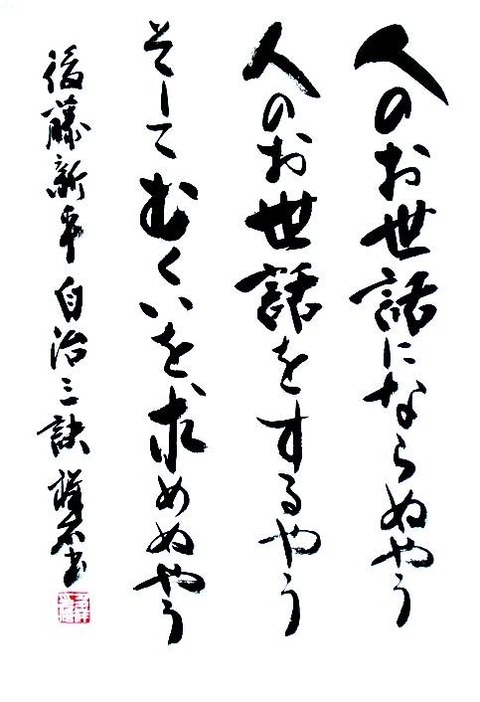 人のお世話にならぬやう
人のお世話をするやう
そしてむくいを求めぬやう
後藤新平自治三訣